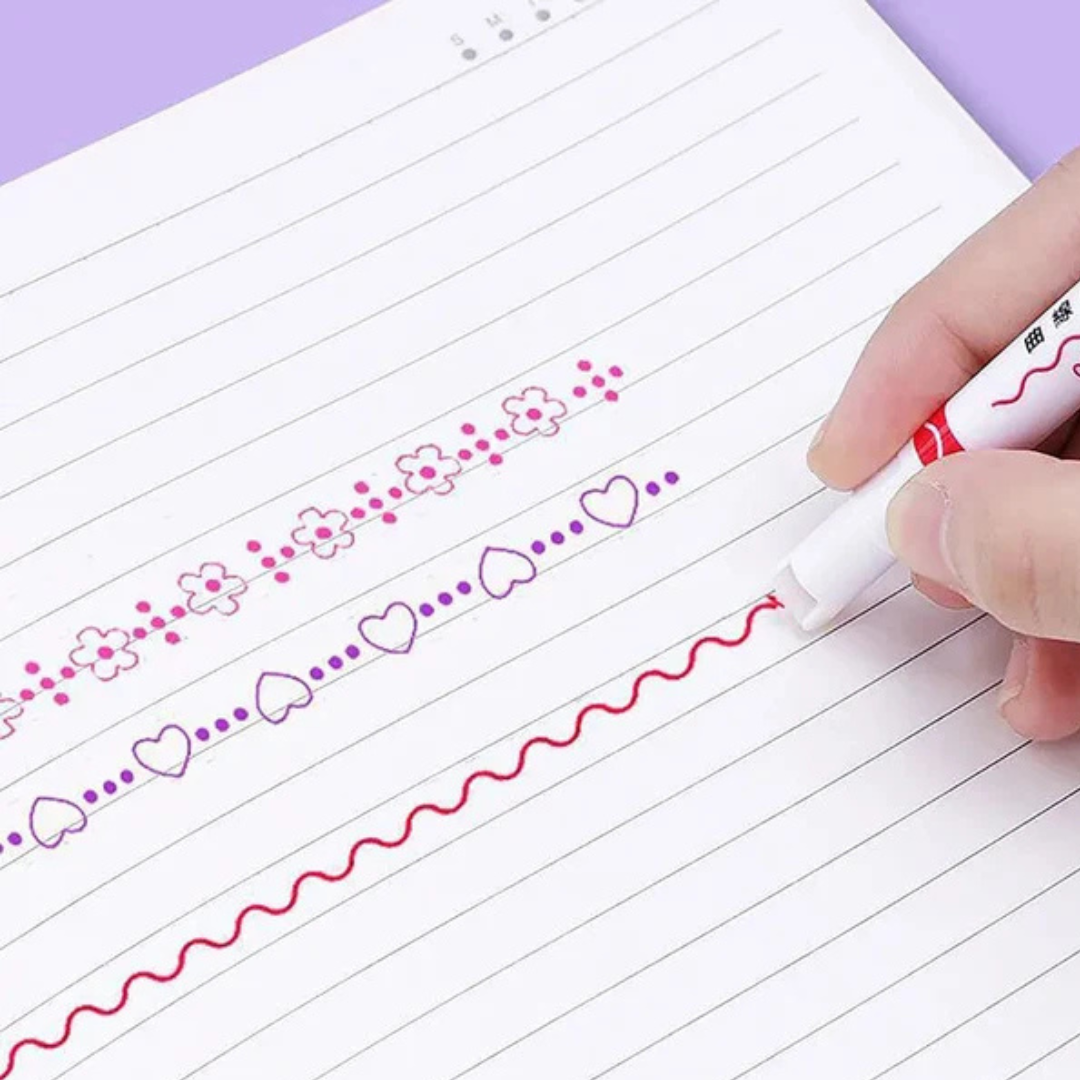 S M T
曲線